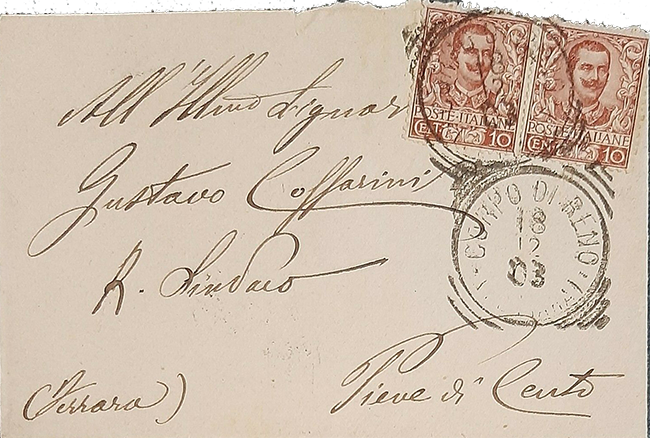 All'Ill.mo Signor
Gustavo Coffarini
R. Sindaco
Pieve di Cento
(Ferrara)
POSTE·ITALIANE
CENT. 10
POSTE·ITALIANE
CENT. 10
CORPO DI RENO
18
12
03